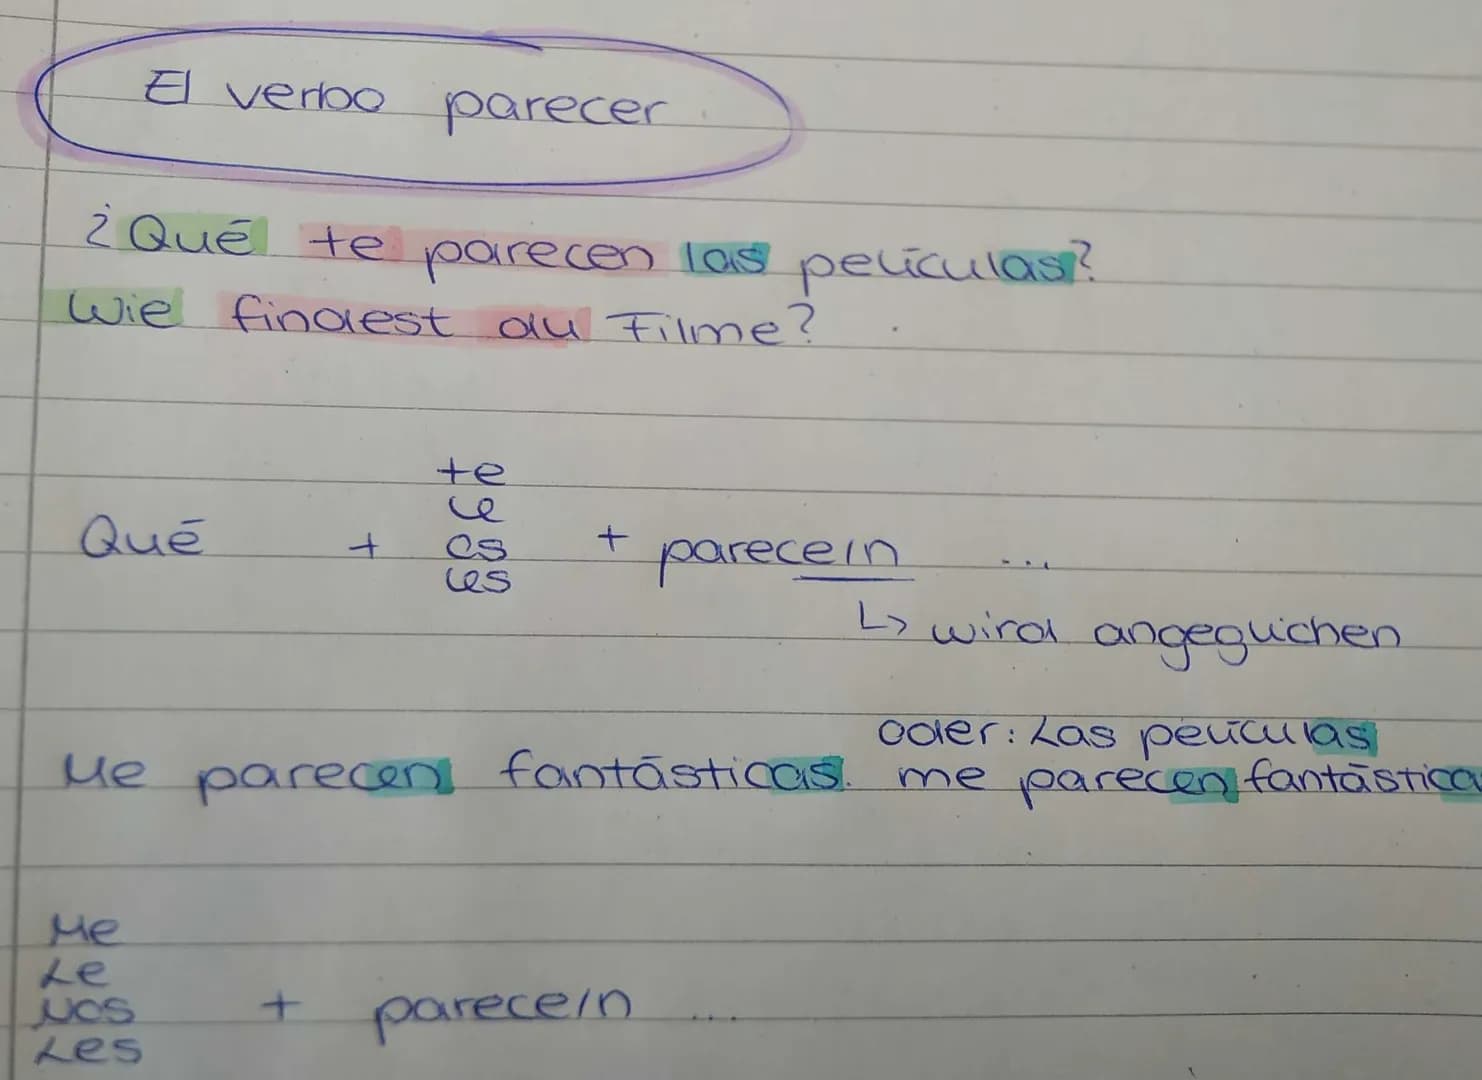 El verbo parecer
¿Qué te parecen las películas?
Wie findest du Filme?
te
le
Qué + os + parece/n ...
les
↳ wird angeglichen
oder: Las películas
Me parecen fantásticas. me parecen fantástica
Me
Le
Nos + parece/n ...
Les